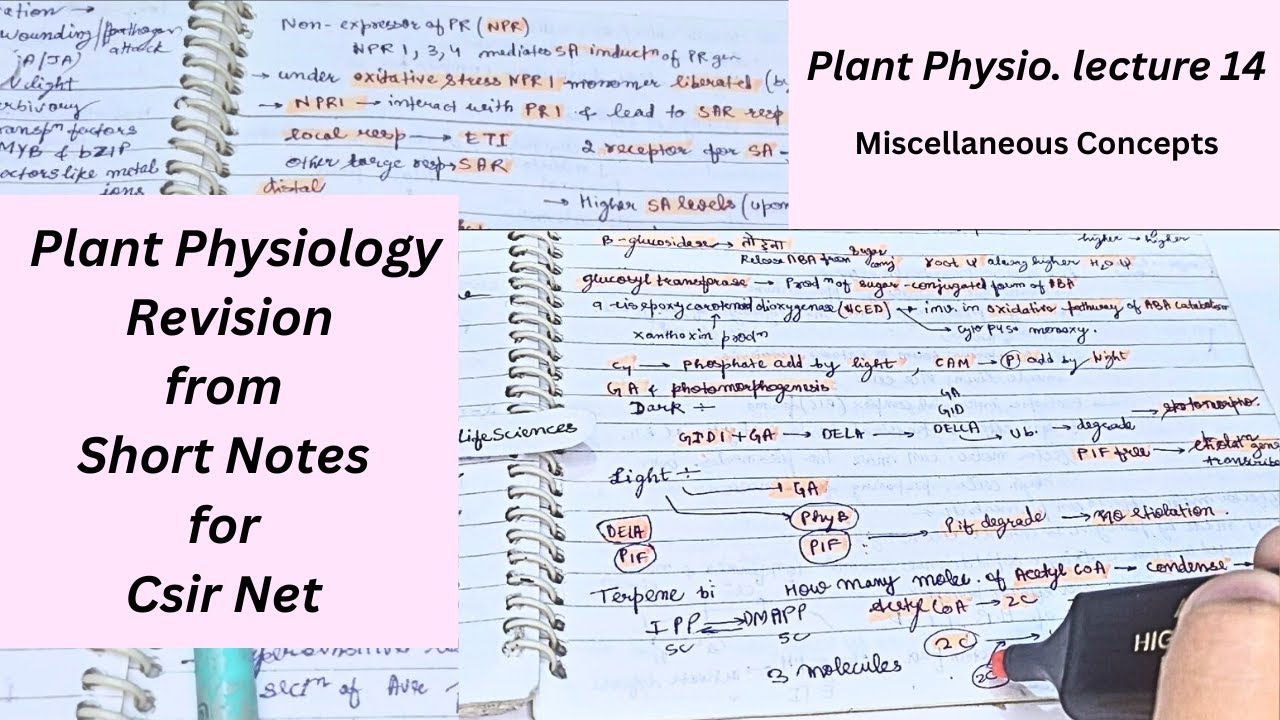 Plant Physio. lecture 14
Miscellaneous Concepts
Plant Physiology
Revision
from
Short Notes
for
Csir Net
wounding/pathogen
attack
jA/JA)
light
Non-expressor of PR (NPR)
NPR 1, 3, 4 mediates SA inductn of PR gen
→ under oxitative stress NPR1 monomer liberated (b
→ NPR1 → interact with PR1 & lead to SAR resp
local resp → ETI
2 receptor for SA -
other large resp → SAR
distal
→ Higher SA levels (upon
MYB & bZIP
actors like metal
ions
B-glucosidase → तोड़ना
Release ABA from sugar
conj
higher → higher
root Ψ along higher H2O Ψ
glucosyl transferase → Prodn of sugar-conjugated form of ABA
9-cisepoxycarotenoid dioxygenase (NCED)
inv. in oxidative pathway of ABA catabolism
xanthoxin prodn
cyto P450 monoxy.
C4 → phosphate add by light , CAM → P add by Night
GA & photomorphogenesis
Dark ÷
GID1 + GA → DELA →
GA
GID
DELLA
→ Ubi. → degrade
PIF free → etiolatn gene
transcribe
LifeSciences
Light ÷
GA
DELA
PIF
PhyB
PIF
Pif degrade → no etiolation.
Terpene bi
How many molec. of Acetyl CoA → condense →
Acetyl CoA → 2C
IPP ⇌ DMAPP
5C 5C
2C
3 molecules
2C
HIG
secn of Auxe